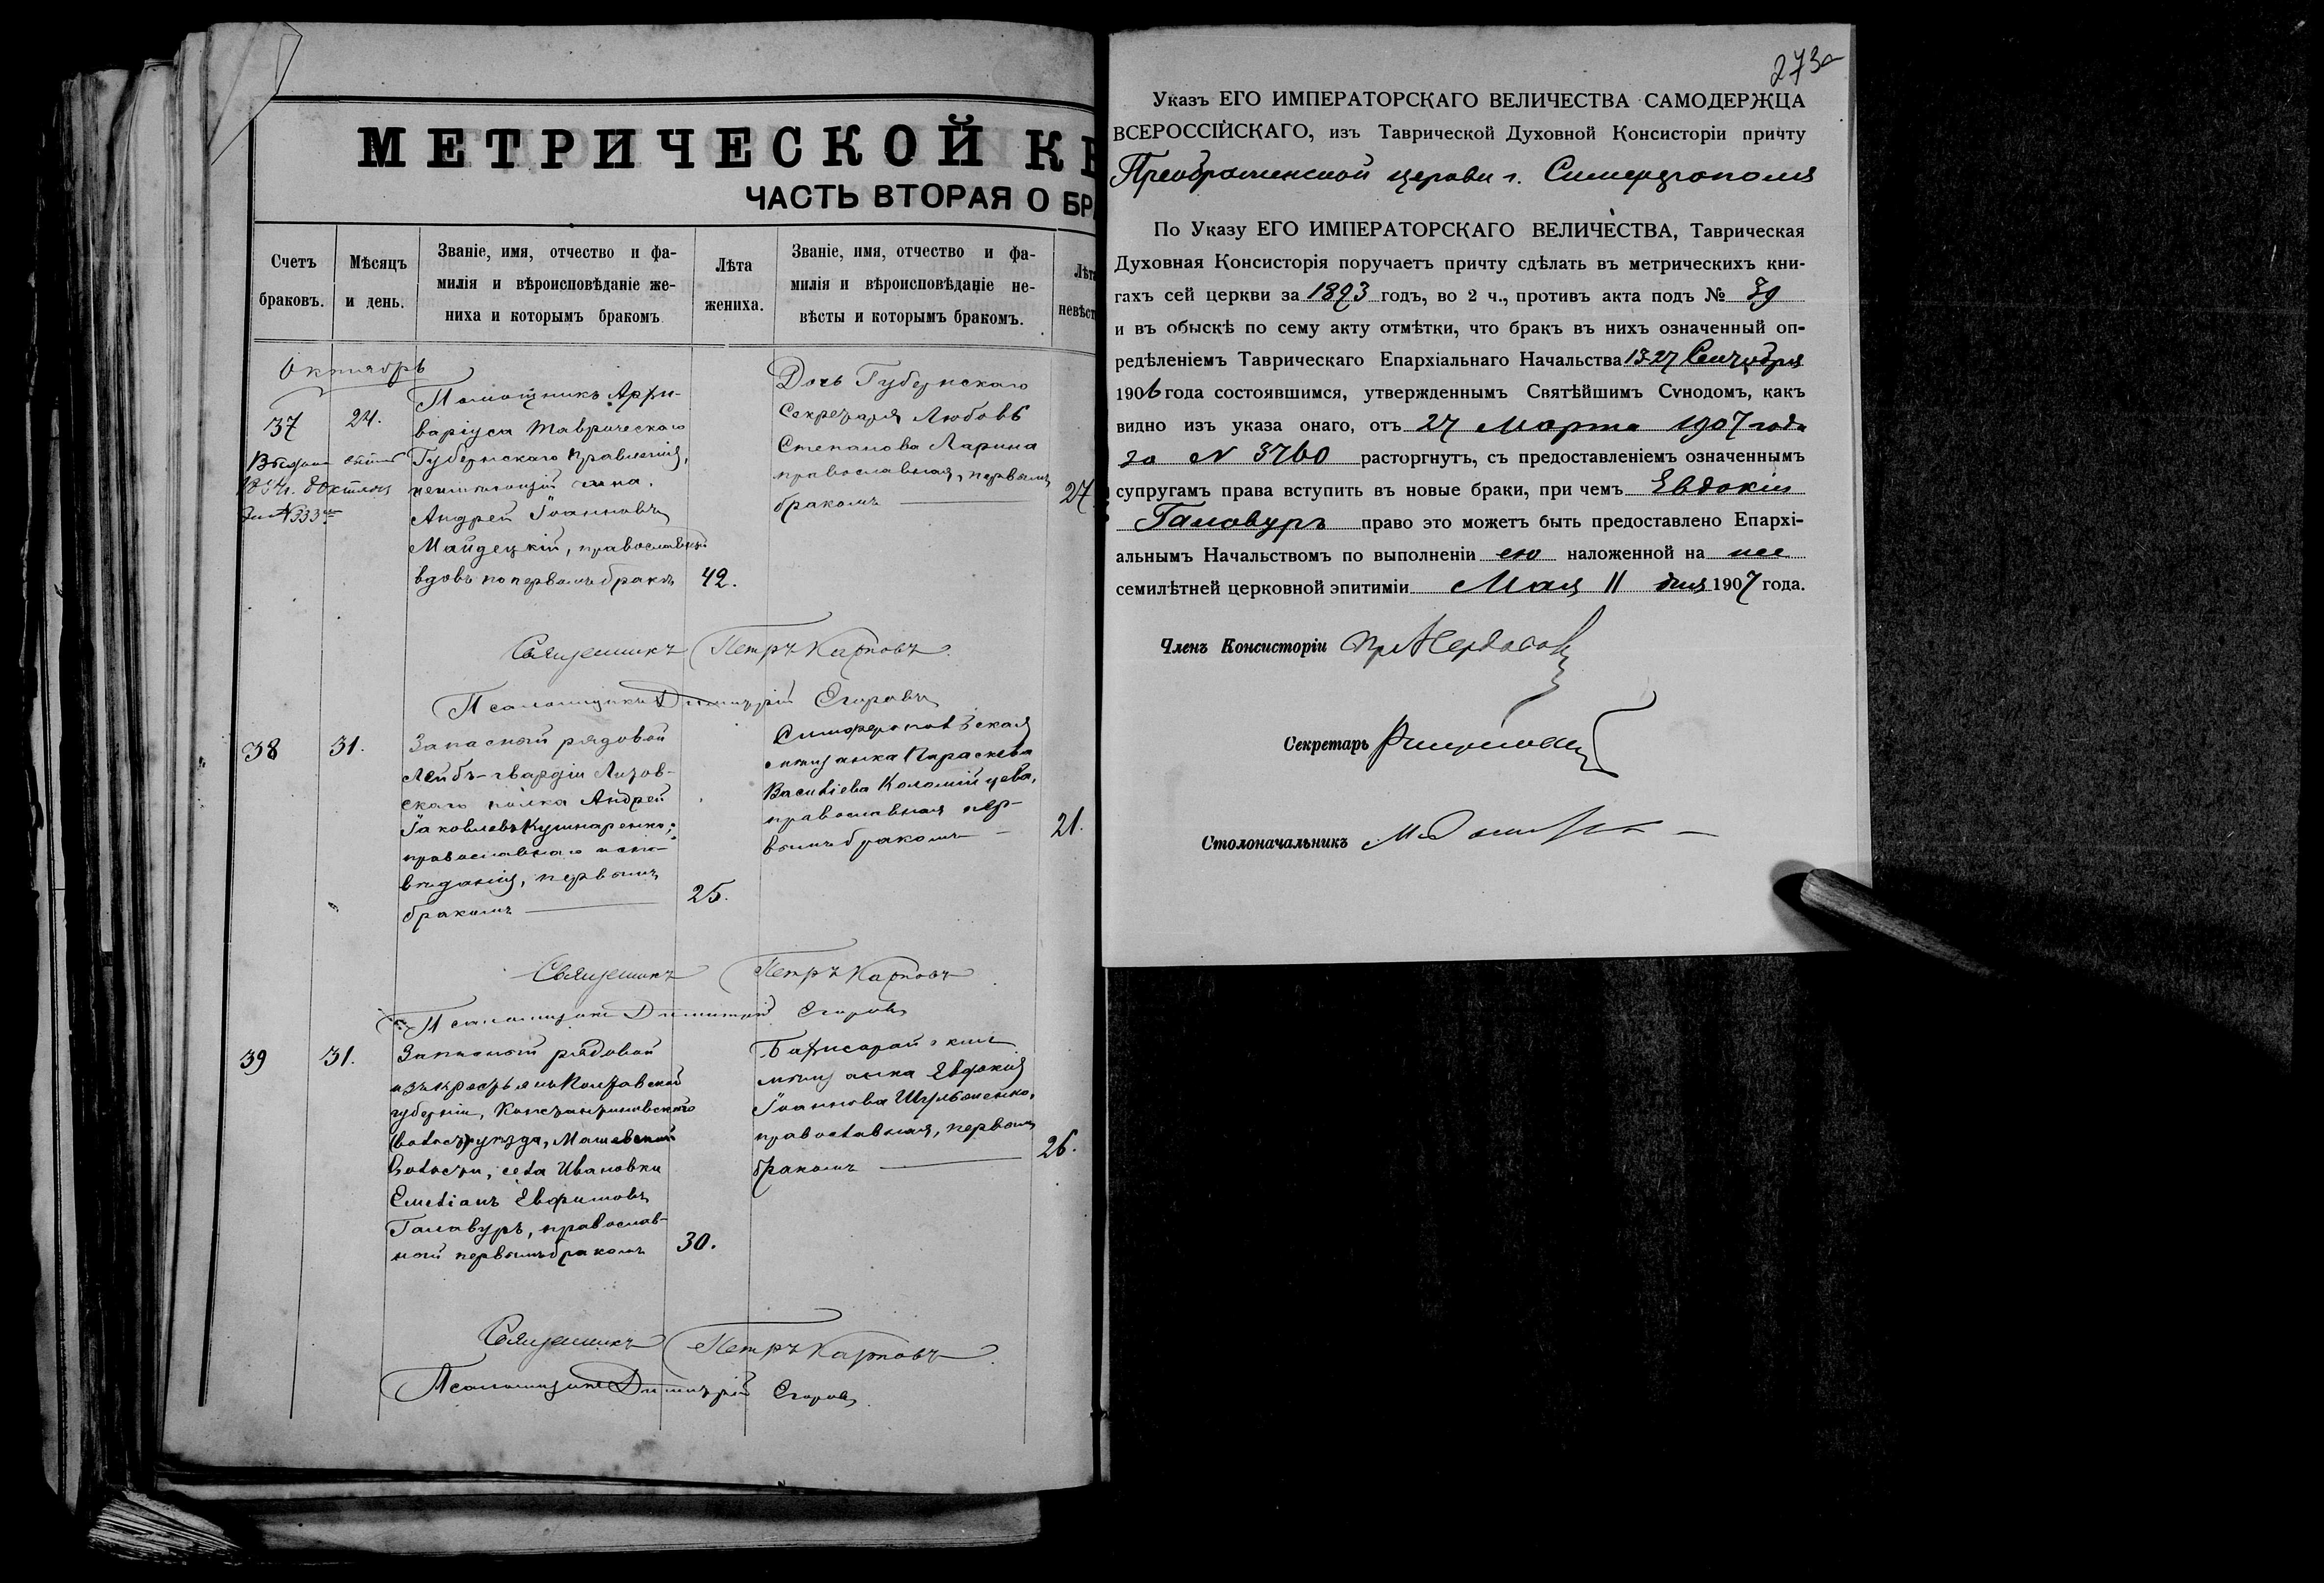 МЕТРИЧЕСКОЙ К
ЧАСТЬ ВТОРАЯ О БР
Счетъ браковъ.
Мѣсяцъ и день.
Званіе, имя, отчество и фа-
милія и вѣроисповѣданіе же-
ниха и которымъ бракомъ
Лѣта жениха.
Званіе, имя, отчество и фа-
милія и вѣроисповѣданіе не-
вѣсты и которымъ бракомъ.
Лѣта
невѣст
Октябрь
37
24.
Помощникъ Архи-
варіуса Таврическаго
Губернскаго Правленія,
неимеющій чина.
Андрей Іоанновъ
Майдецкій, православный
вдовъ по первомъ бракѣ
42.
за №333
Дочь Губернскаго
Секретаря Любовь
Степанова Ларина
православная, первымъ
бракомъ
27
Священникъ Петръ Карповъ.
Псаломщикъ Димитрій Егоровъ
38
31.
Запасный рядовой
Лейбъ-гвардіи Литов-
скаго полка Андрей
Іаковлевъ Кушнаренко,
православнаго испо-
вѣданія, первымъ
бракомъ
25.
Симферопольская
мѣщанка Параскева
Василіева Коломійцева,
православная пер-
вымъ бракомъ
21.
Священникъ Петръ Карповъ
Псаломщикъ Димитрій Егоровъ
39
31.
Запасный рядовой
изъ крестьянъ Полтавской
губерніи, Константиновскаго
(волост) уѣзда, Машевской
волости, села Ивановки
Емеліанъ Евфимовъ
Галавуръ, православ-
ный первымъ бракомъ
30.
Бахчисарайская
мѣщанка Евдокія
Іоаннова Шульженко,
православная, первымъ
бракомъ
26.
Священникъ Петръ Карповъ.
Псаломщикъ Димитрій Егоровъ
273
Указъ ЕГО ИМПЕРАТОРСКАГО ВЕЛИЧЕСТВА САМОДЕРЖЦА
ВСЕРОССІЙСКАГО, изъ Таврической Духовной Консисторіи причту
Преображенской церкви г. Симферополя
По Указу ЕГО ИМПЕРАТОРСКАГО ВЕЛИЧЕСТВА, Таврическая
Духовная Консисторія поручаетъ причту сдѣлать въ метрическихъ кни-
гахъ сей церкви за 1893 годъ, во 2 ч., противъ акта подъ № 39
и въ обыскѣ по сему акту отмѣтки, что бракъ въ нихъ означенный оп-
редѣленіемъ Таврическаго Епархіальнаго Начальства 13-27 Сентября
1906 года состоявшимся, утвержденнымъ Святѣйшимъ Сѵнодомъ, какъ
видно изъ указа онаго, отъ 27 Марта 1907 года
за N 3760 расторгнутъ, съ предоставленіемъ означеннымъ
супругамъ права вступить въ новые браки, при чемъ Евдокіи
Галовуръ право это можетъ быть предоставлено Епархі-
альнымъ Начальствомъ по выполненіи ею наложенной на нее
семилѣтней церковной эпитиміи Мая 11 дня 1907 года.
Членъ Консисторіи
Секретарь
Столоначальникъ